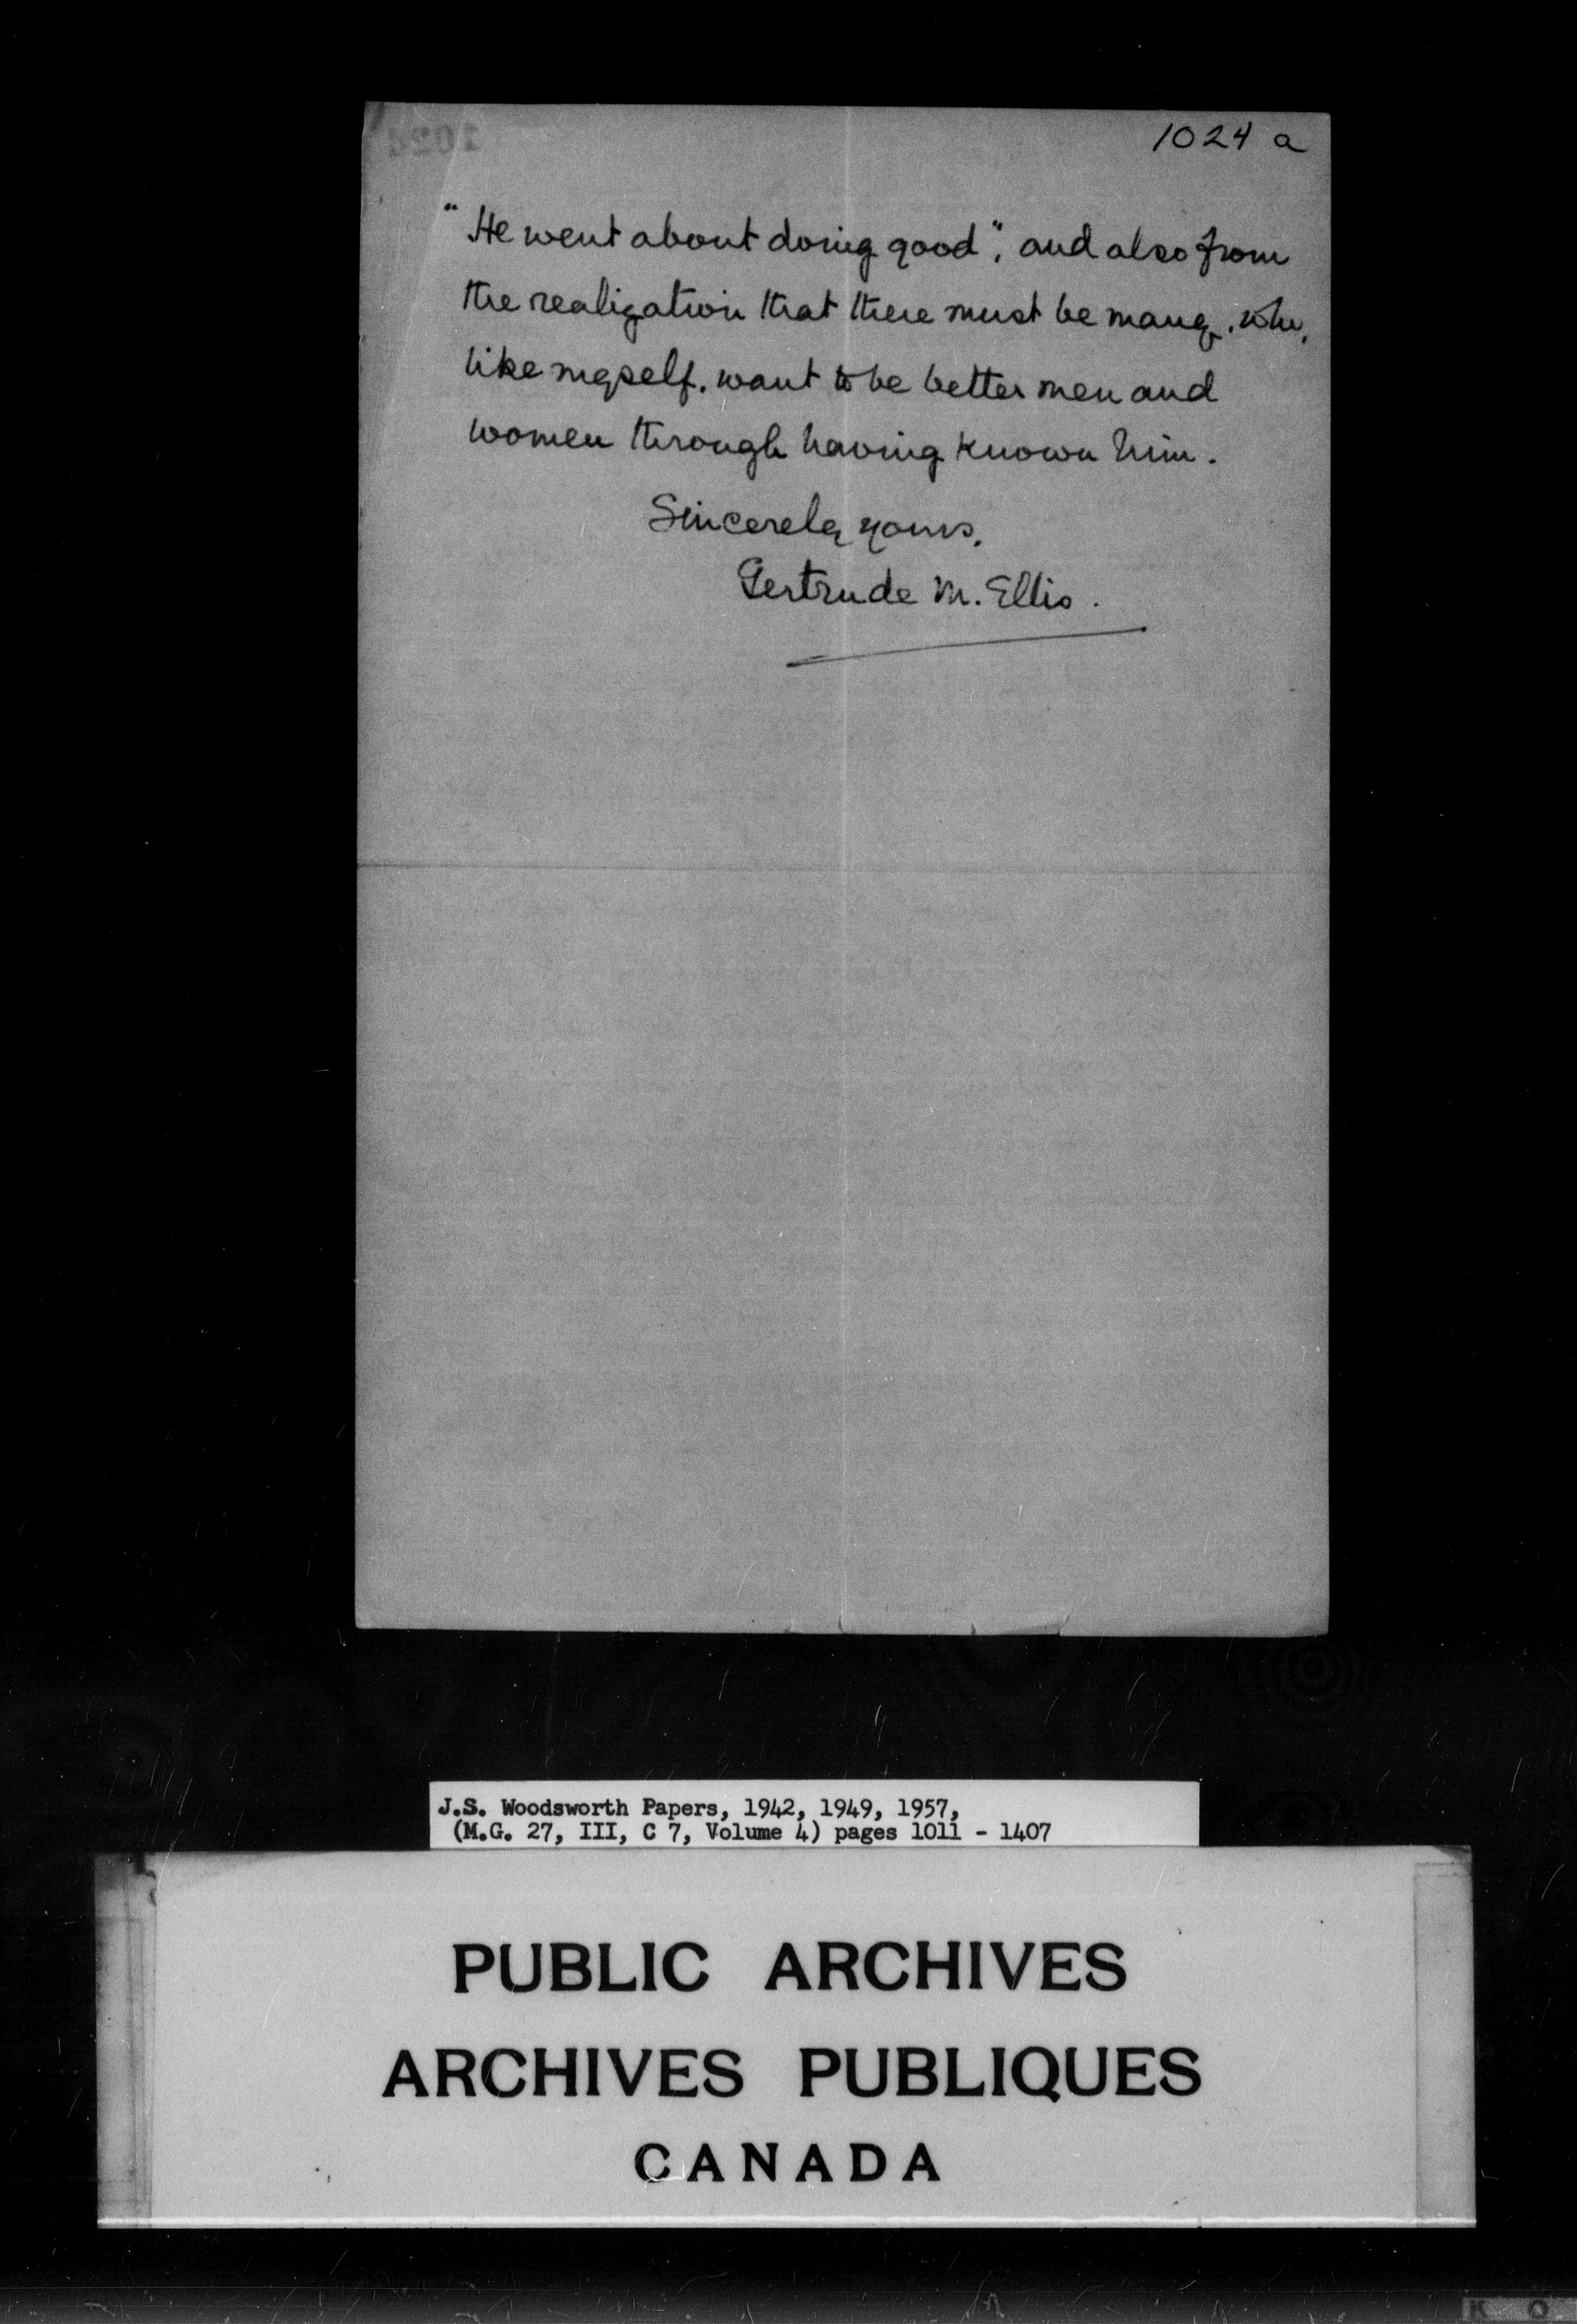 1024 a
1024
"He went about doing good", and also from
the realization that there must be many, who,
like myself, want to be better men and
women through having known him.
Sincerely yours,
Gertrude M. Ellis.
J.S. Woodsworth Papers, 1942, 1949, 1957,
(M.G. 27, III, C 7, Volume 4) pages 1011 - 1407
PUBLIC ARCHIVES
ARCHIVES PUBLIQUES
CANADA